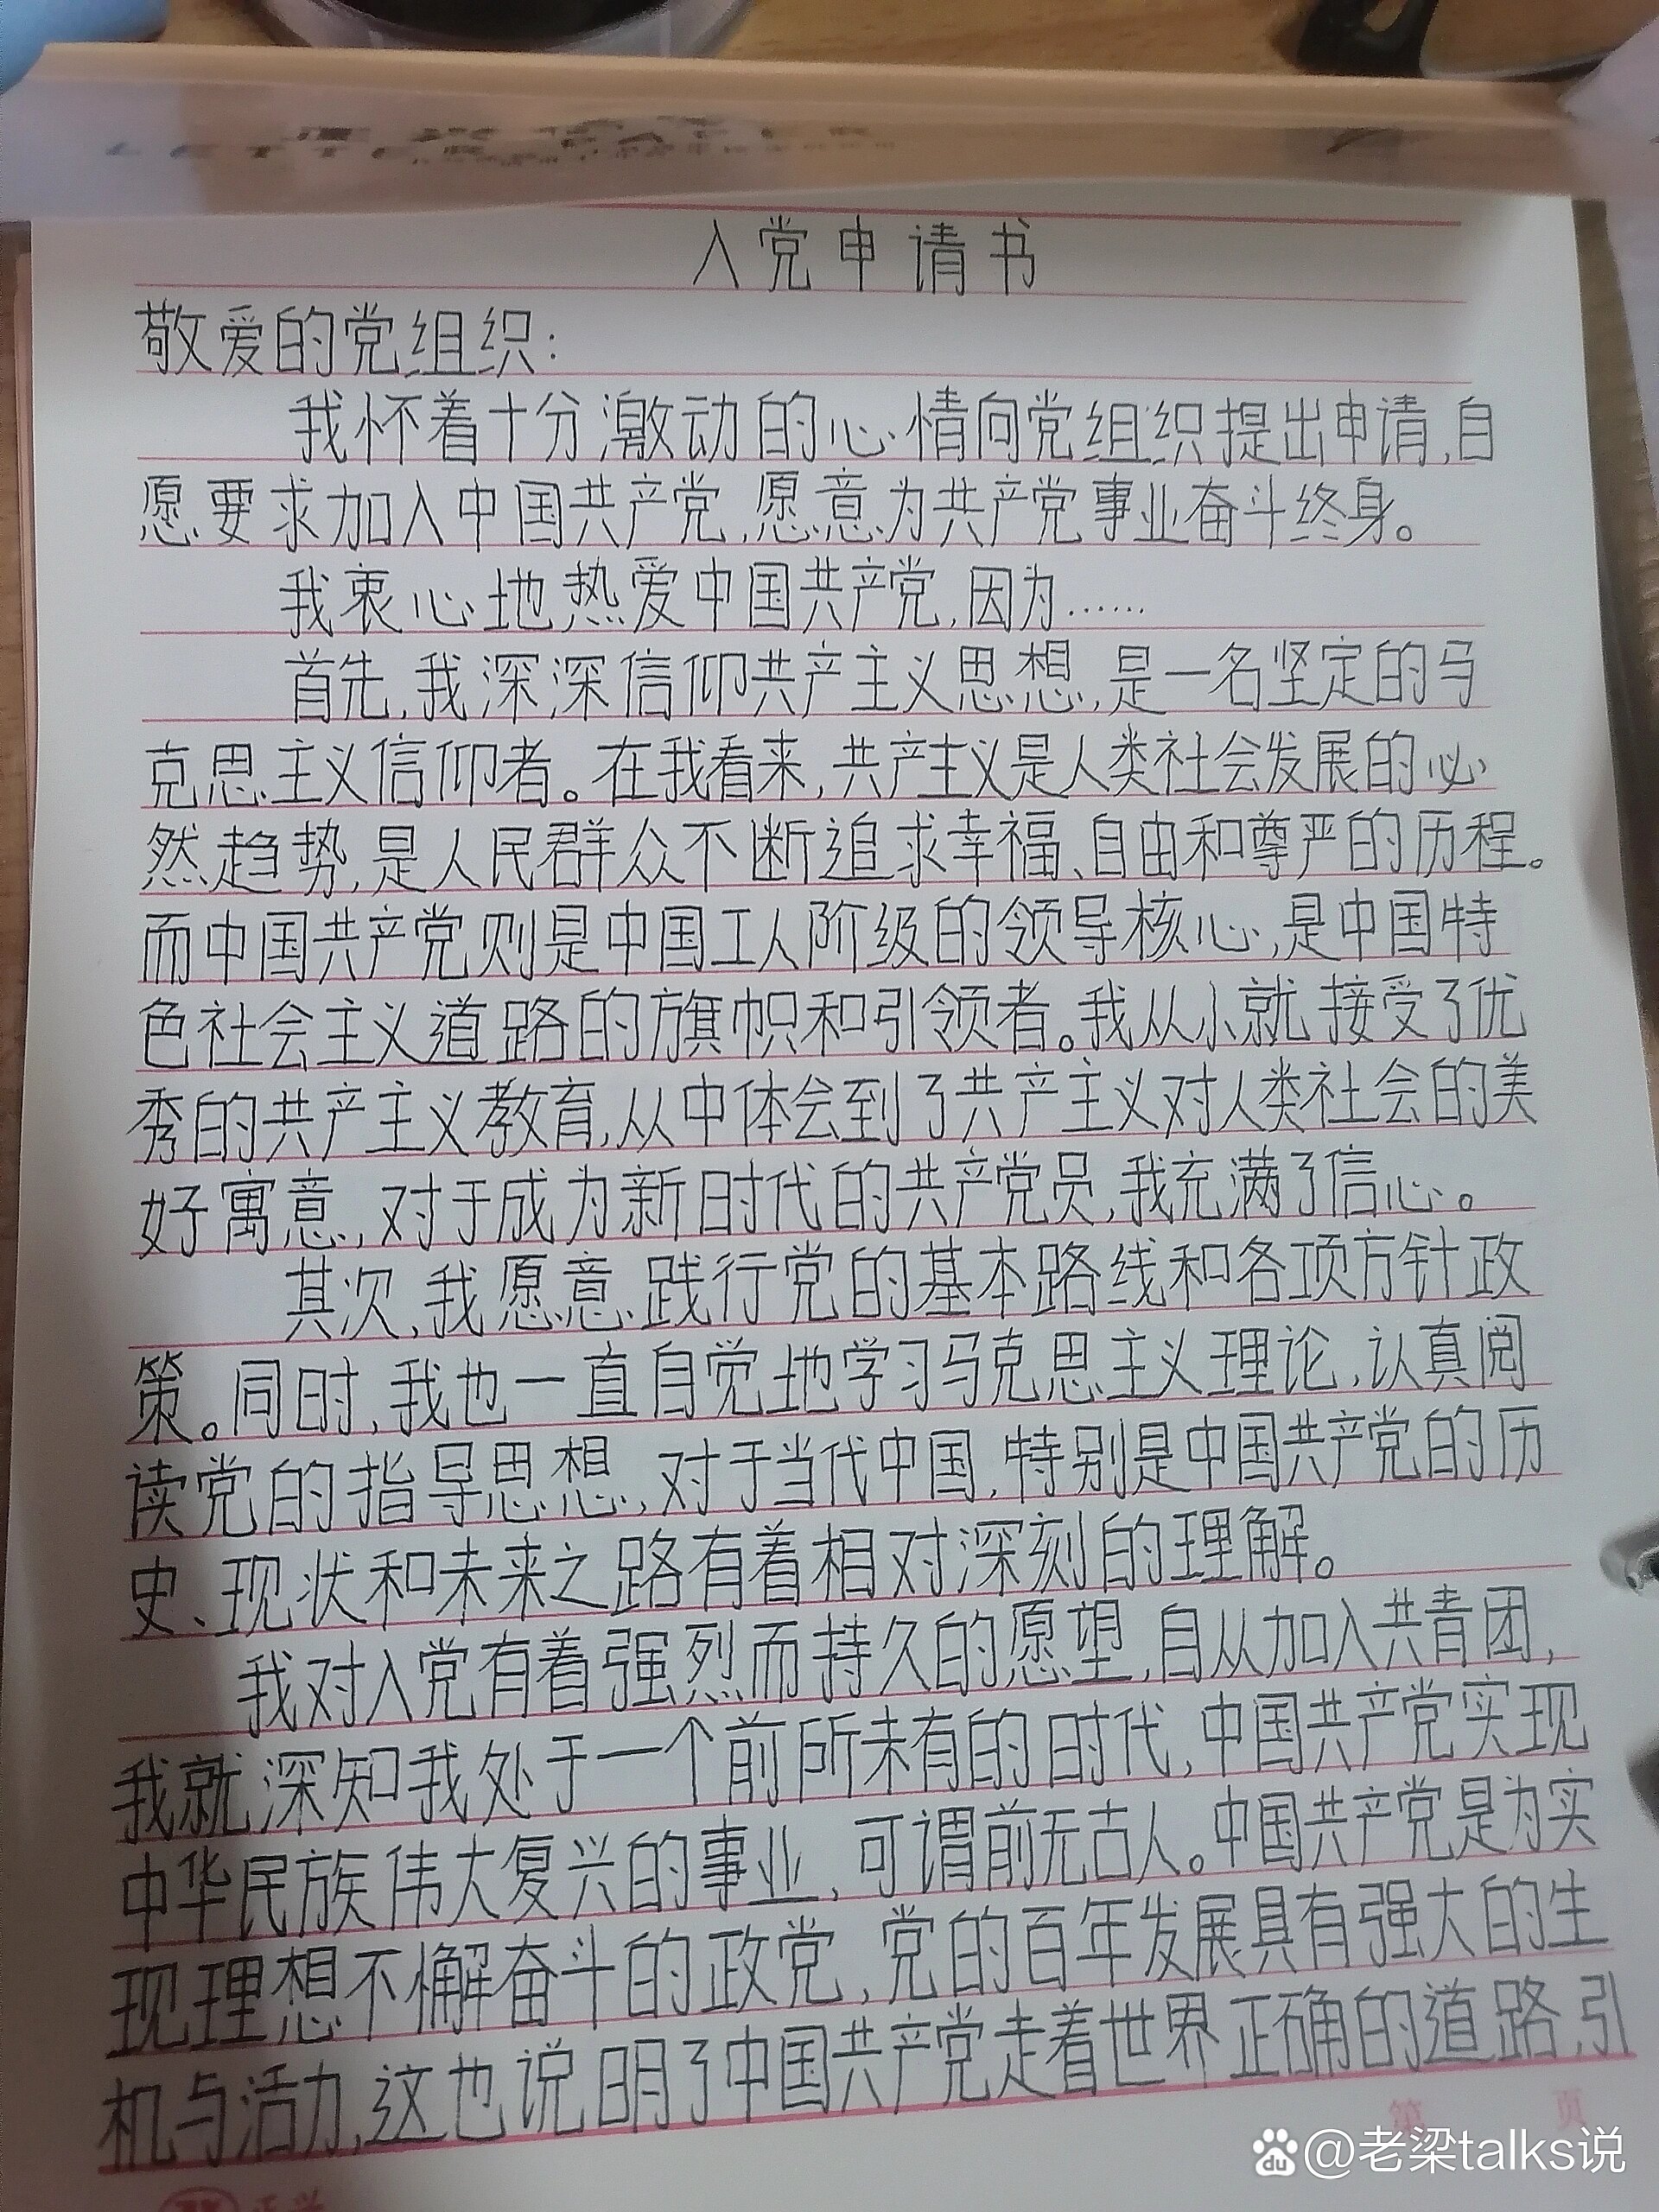 入党申请书
敬爱的党组织:
我怀着十分激动的心情向党组织提出申请,自
愿要求加入中国共产党,愿意为共产党事业奋斗终身。
我衷心地热爱中国共产党,因为……
首先,我深深信仰共产主义思想,是一名坚定的马
克思主义信仰者。在我看来,共产主义是人类社会发展的必
然趋势,是人民群众不断追求幸福、自由和尊严的历程。
而中国共产党则是中国工人阶级的领导核心,是中国特
色社会主义道路的旗帜和引领者。我从小就接受了优
秀的共产主义教育,从中体会到了共产主义对人类社会的美
好寓意,对于成为新时代的共产党员,我充满了信心。
其次,我愿意践行党的基本路线和各项方针政
策。同时,我也一直自觉地学习马克思主义理论,认真阅
读党的指导思想,对于当代中国,特别是中国共产党的历
史、现状和未来之路有着相对深刻的理解。
我对入党有着强烈而持久的愿望,自从加入共青团,
我就深知我处于一个前所未有的时代,中国共产党实现
中华民族伟大复兴的事业,可谓前无古人。中国共产党是为实
现理想不懈奋斗的政党,党的百年发展具有强大的生
机与活力,这也说明了中国共产党走着世界正确的道路,引
第 页
@老梁talks说